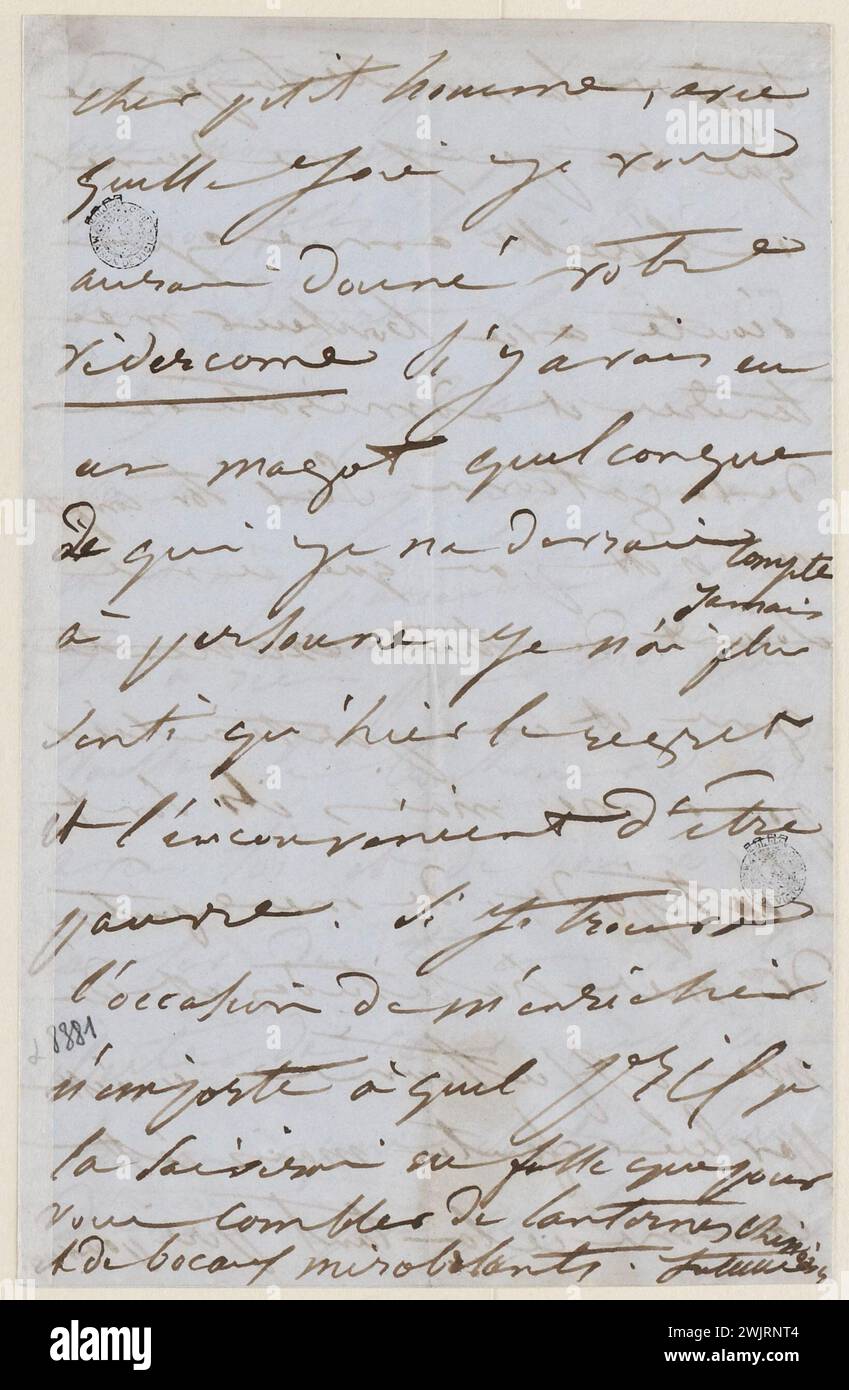 cher petit homme, avec
quelle joie je vous
aurais donné votre
vidercome si j'avais eu
un magot quelconque
de qui je ne devrais compte
à personne. Je n'ai jamais plus
senti qu'hier le regret
et l'inconvénient d'être
pauvre. Si je trouve
l'occasion de m'enrichir
n'importe à quel prix je
la saisirai ne fût-ce que pour
vous combler de lanternes chinoises
et de bocaux mirobolants.
8881
alamy
Image ID: 2WJRNT4
www.alamy.com